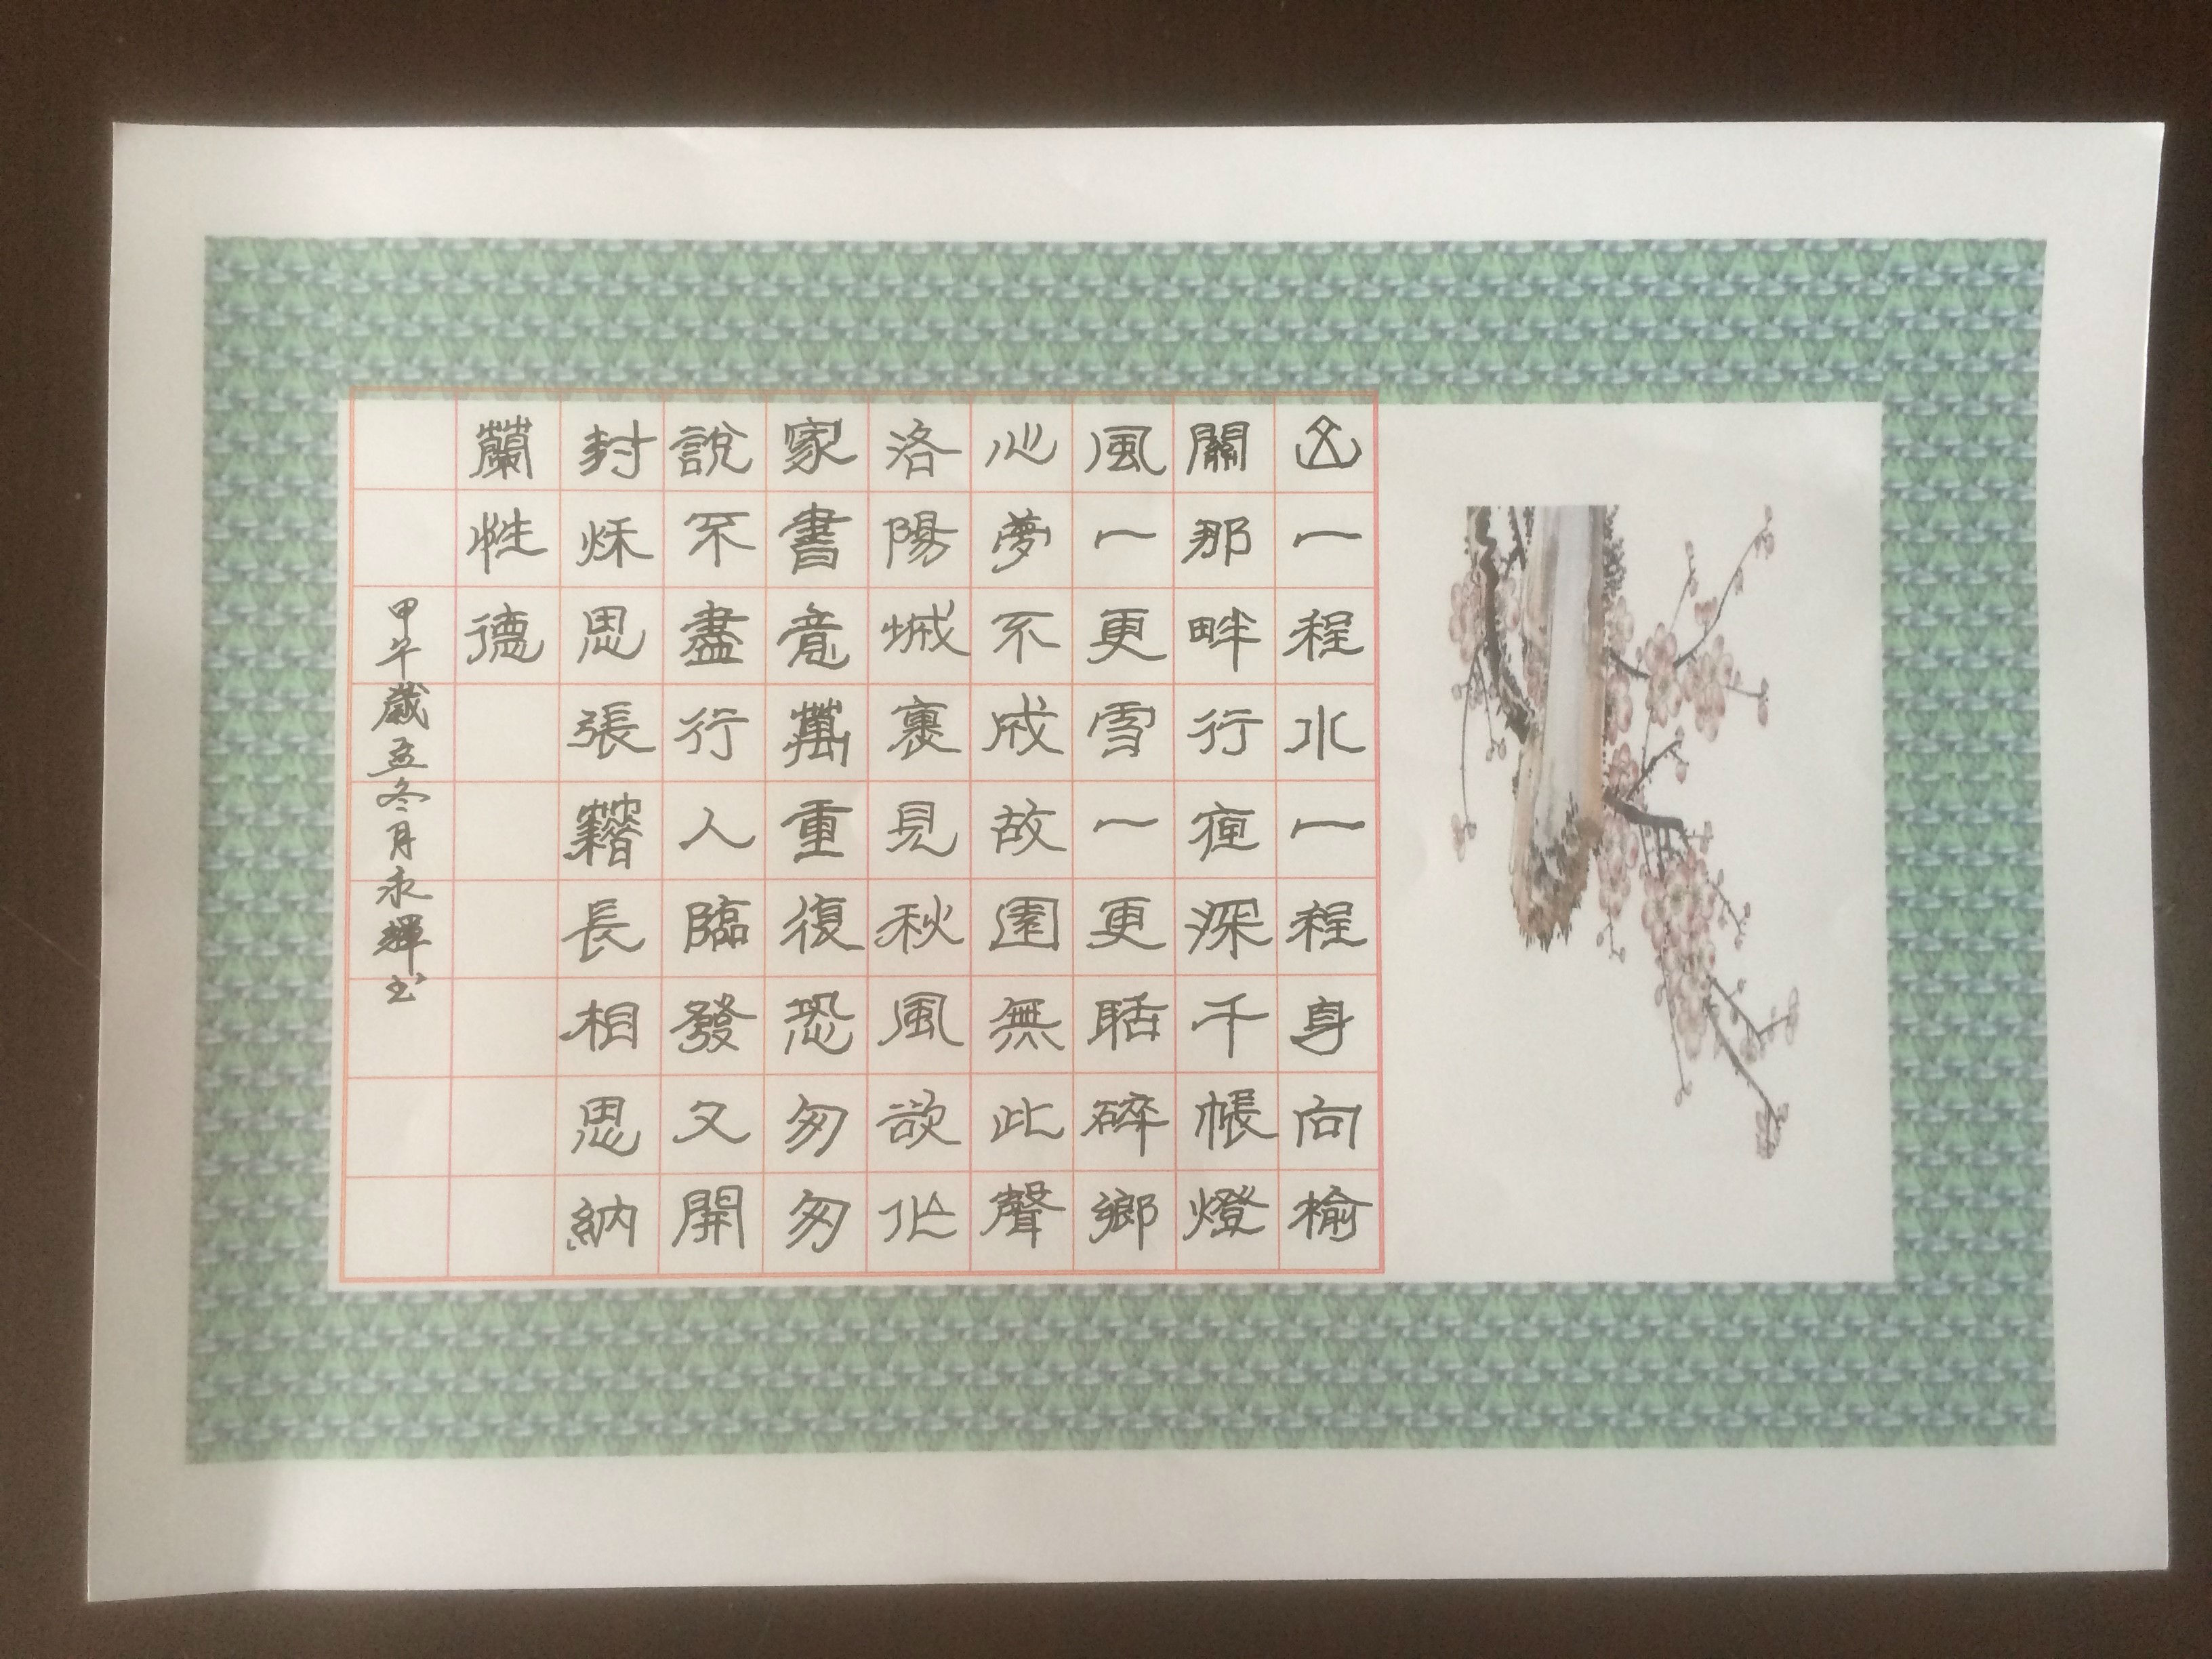 山一程水一程身向榆
關那畔行夜深千帳燈
風一更雪一更聒碎鄉
心夢不成故園無此聲
洛陽城裏見秋風欲作
家書意萬重復恐匆匆
說不盡行人臨發又開
封秋思張籍長相思納
蘭性德
甲午歲冬月永輝书